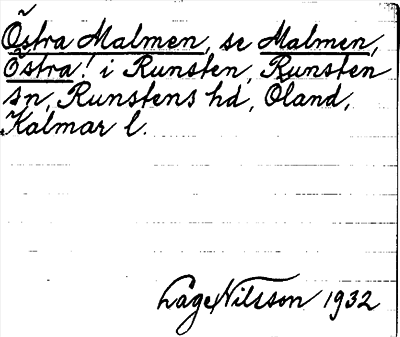 Östra Malmen, se Malmen,
Östra! i Runsten, Runsten
sn, Runstens hd, Öland,
Kalmar l.
Lage Nilsson 1932